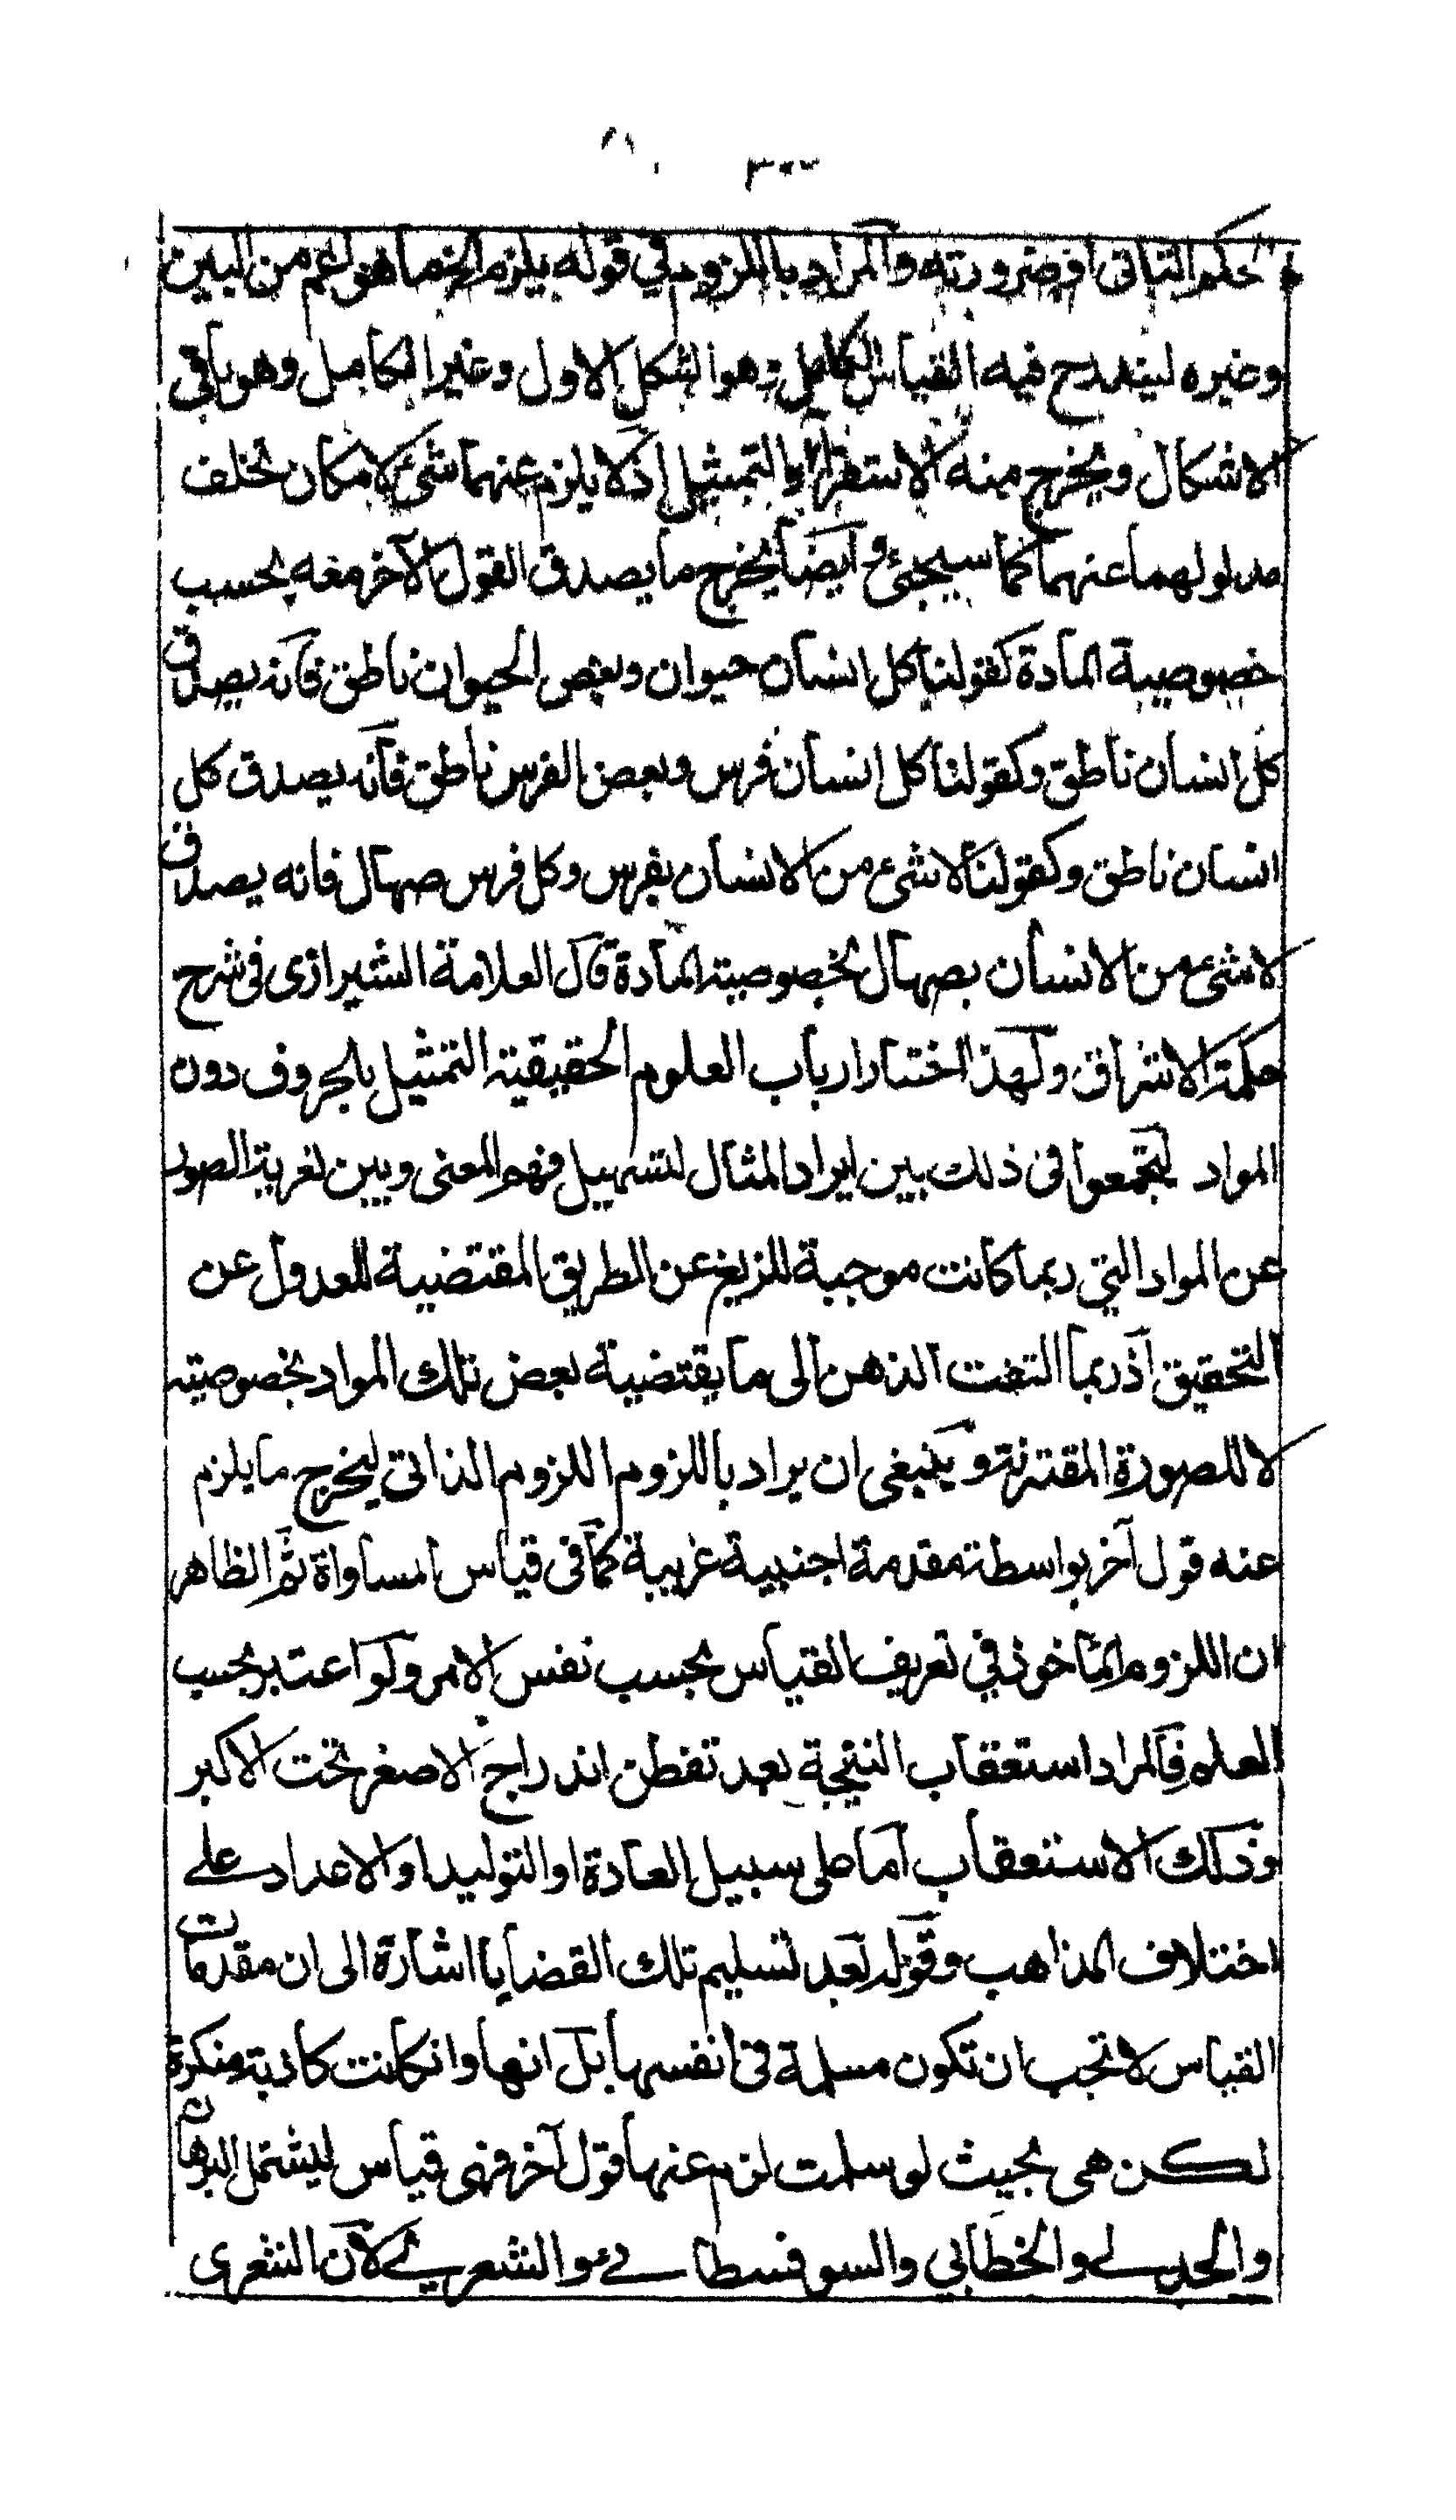 ٣٠٠
حكم الثانى او ضرورته والمراد باللزوم في قوله يلزم الخ ما هو اعم من البين
وغيره ليندرج فيه القياس الكامل وهو الشكل الاول وغير الكامل وهو باقى
الاشكال ويخرج منه الاستقراء والتمثيل اذ لا يلزم عنهما شئ لامكان تخلف
مدلولهما عنهما كما سيجئ وايضا يخرج ما يصدق القول الآخر معه بحسب
خصوصية المادة كقولنا كل انسان حيوان وبعض الحيوان ناطق فانه يصدق
كل انسان ناطق وكقولنا كل انسان فرس وبعض الفرس ناطق فانه يصدق كل
انسان ناطق وكقولنا لا شئ من الانسان بفرس وكل فرس صهال فانه يصدق
لا شئ من الانسان بصهال بخصوصية المادة قال العلامة الشيرازى فى شرح
حكمة الاشراق ولهذا اختار ارباب العلوم الحقيقية التمثيل بالحروف دون
المواد ليجمعوا فى ذلك بين ايراد المثال لتسهيل فهم المعنى وبين تعرية الصور
عن المواد التى ربما كانت موجبة للزيغ عن الطريق المقتضية للعدول عن
التحقيق اذ ربما التفت الذهن الى ما يقتضية بعض تلك المواد بخصوصيته
لا للصورة المقترنة وينبغى ان يراد باللزوم اللزوم الذاتى ليخرج ما يلزم
عنه قول آخر بواسطة مقدمة اجنبية غريبة كما فى قياس المساواة ثم الظاهر
ان اللزوم المأخوذ في تعريف القياس بحسب نفس الامر ولو اعتبر بحسب
العلم فالمراد استعقاب النتيجة بعد تفطن اندراج الاصغر تحت الاكبر
وذلك الاستعقاب اما على سبيل العادة او التوليد او الاعداد على
اختلاف المذاهب وقوله بعد تسليم تلك القضايا اشارة الى ان مقدمات
القياس لا تجب ان تكون مسلمة فى انفسها بل انها وانكانت كاذبة منكرة
لكن هى بحيث لو سلمت لزم عنها قول آخر فهى قياس ليشتمل البرهان
والجدلى والخطابي والسوفسطائى والشعرى لان الشعرى